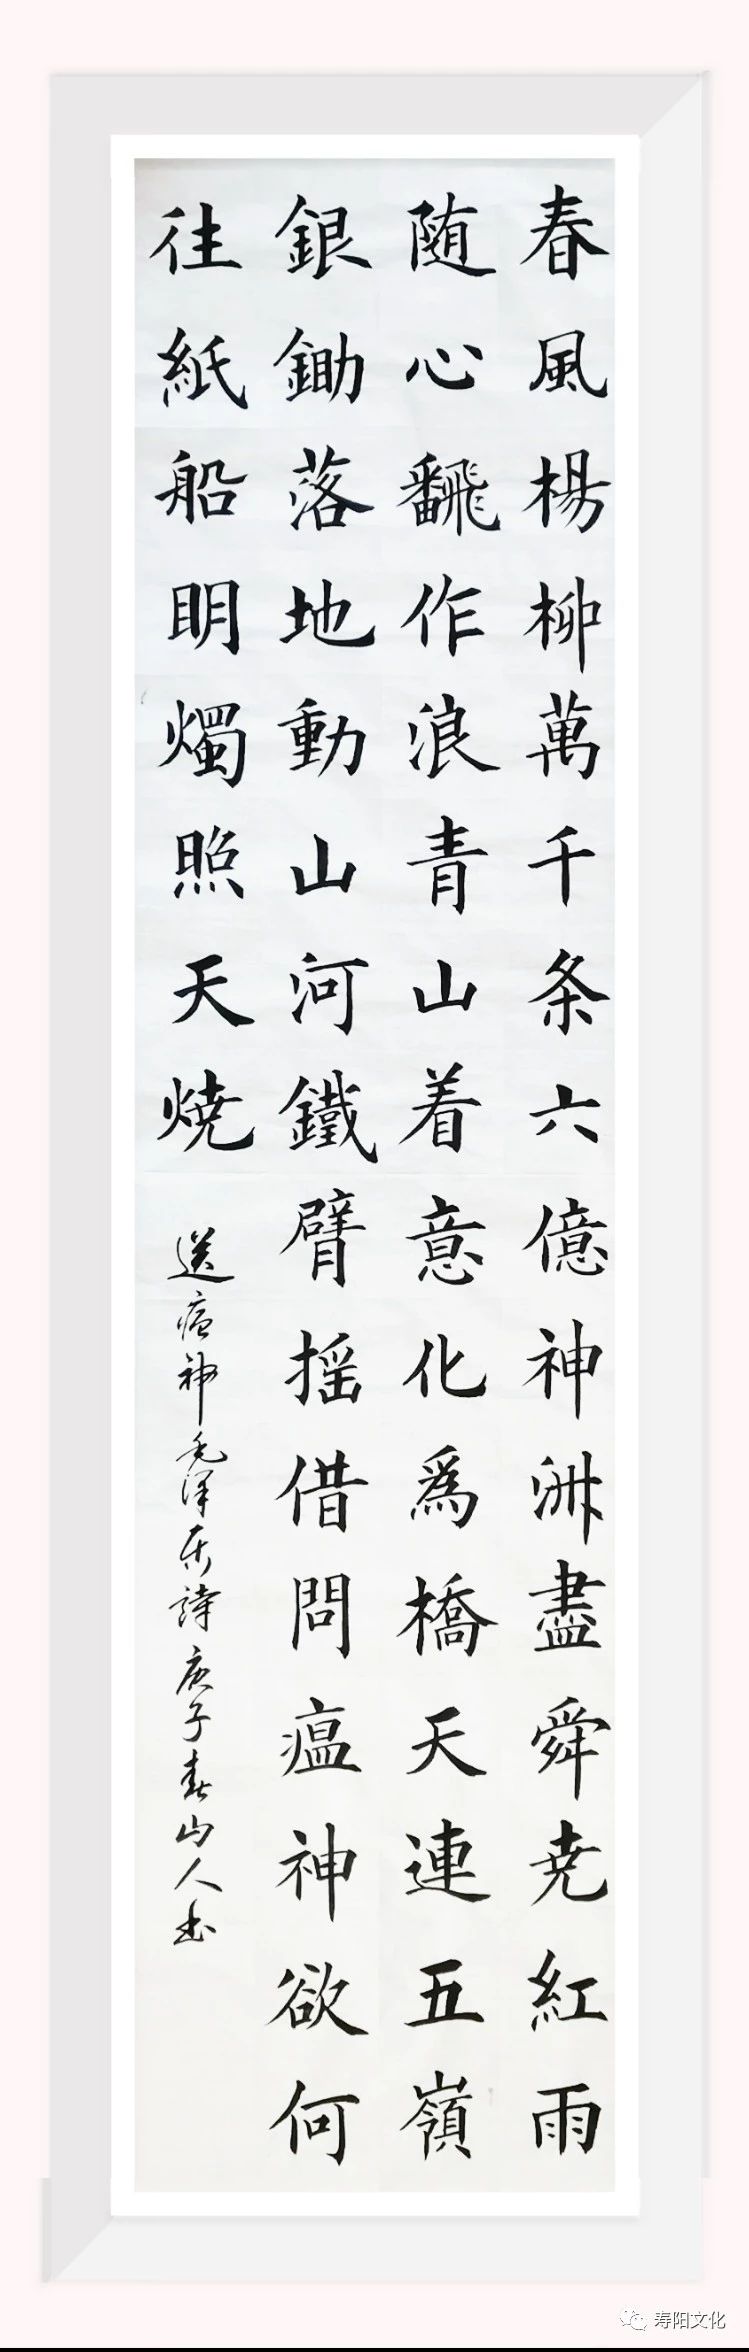 春風楊柳萬千条六億神洲盡舜尭紅雨
随心飜作浪青山着意化為橋天連五嶺
銀鋤落地動山河鐵臂摇借問瘟神欲何
往紙船明燭照天焼
送瘟神毛泽东詩庚子春山人书
寿阳文化